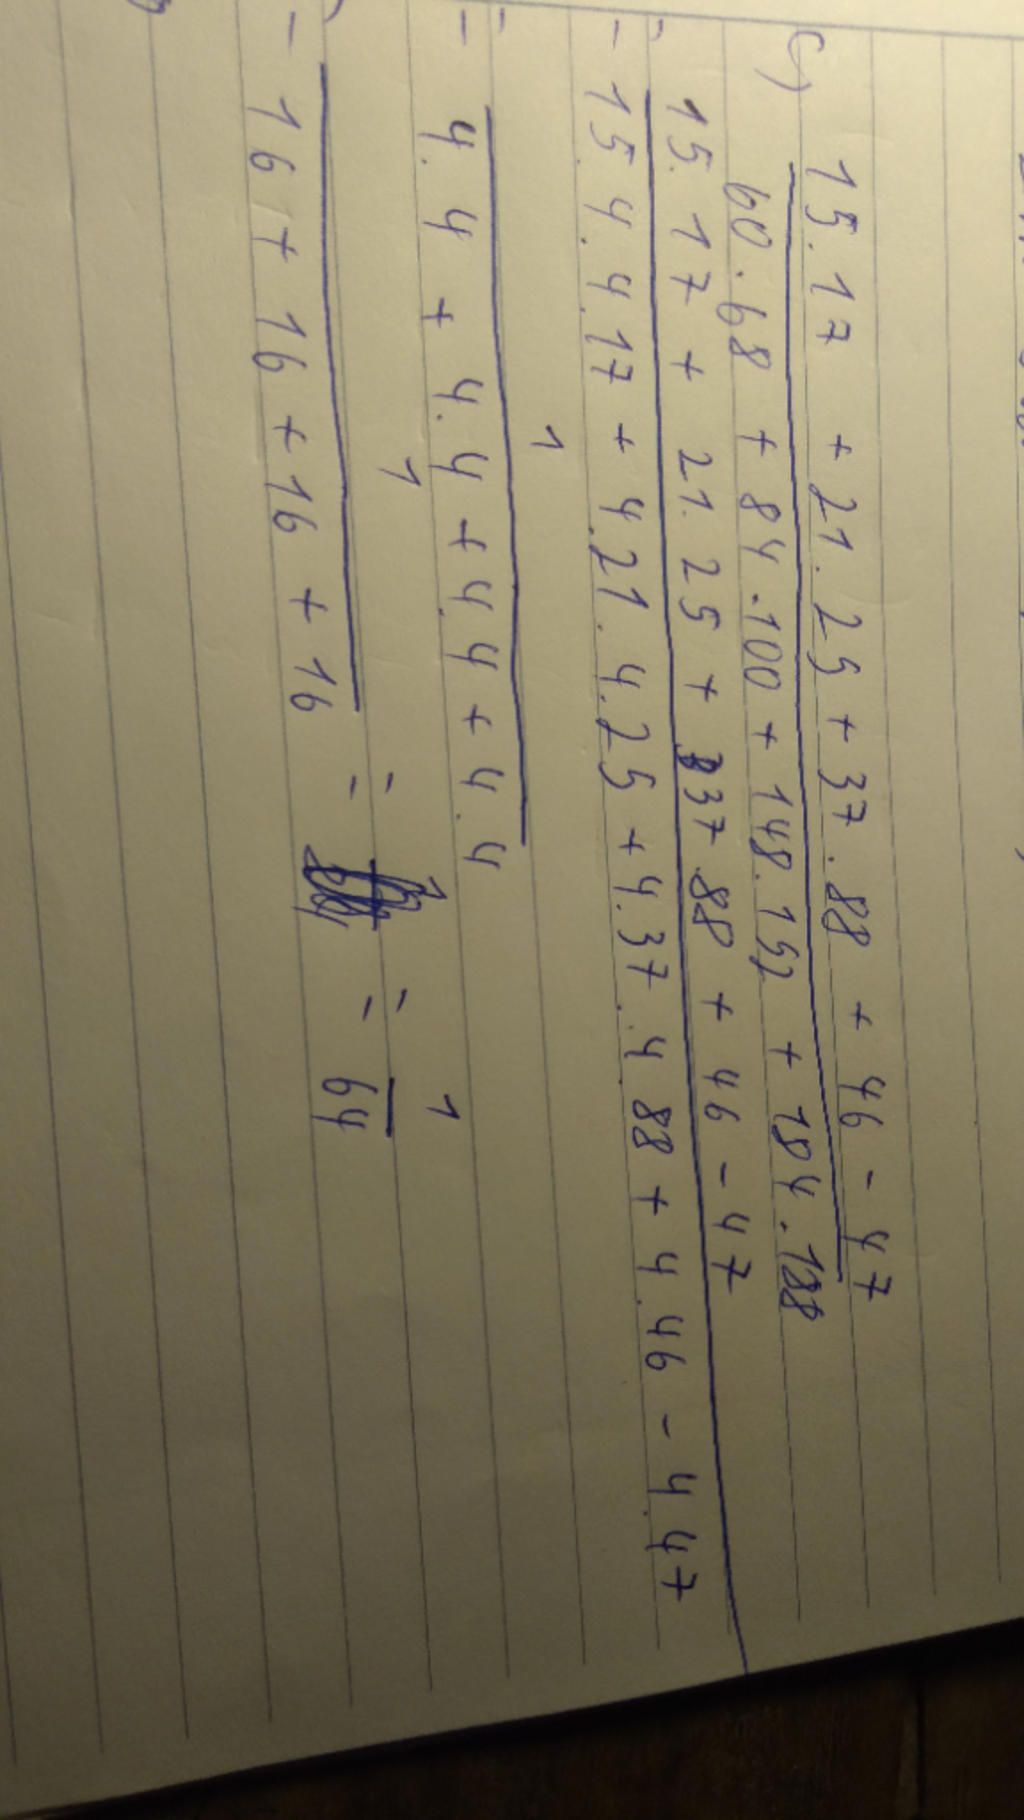 c) 15.17 + 21.25 + 37.88 + 46 - 47
60.68 + 84.100 + 148.152 + 184.188
= 15.17 + 21.25 + 37.88 + 46 - 47
15.4.4.17 + 4.21.4.25 + 4.37.4.88 + 4.46 - 4.47
= 1
4.4 + 4.4 + 4.4 + 4.4
= 1 = 1 = 1
16 + 16 + 16 + 16 64